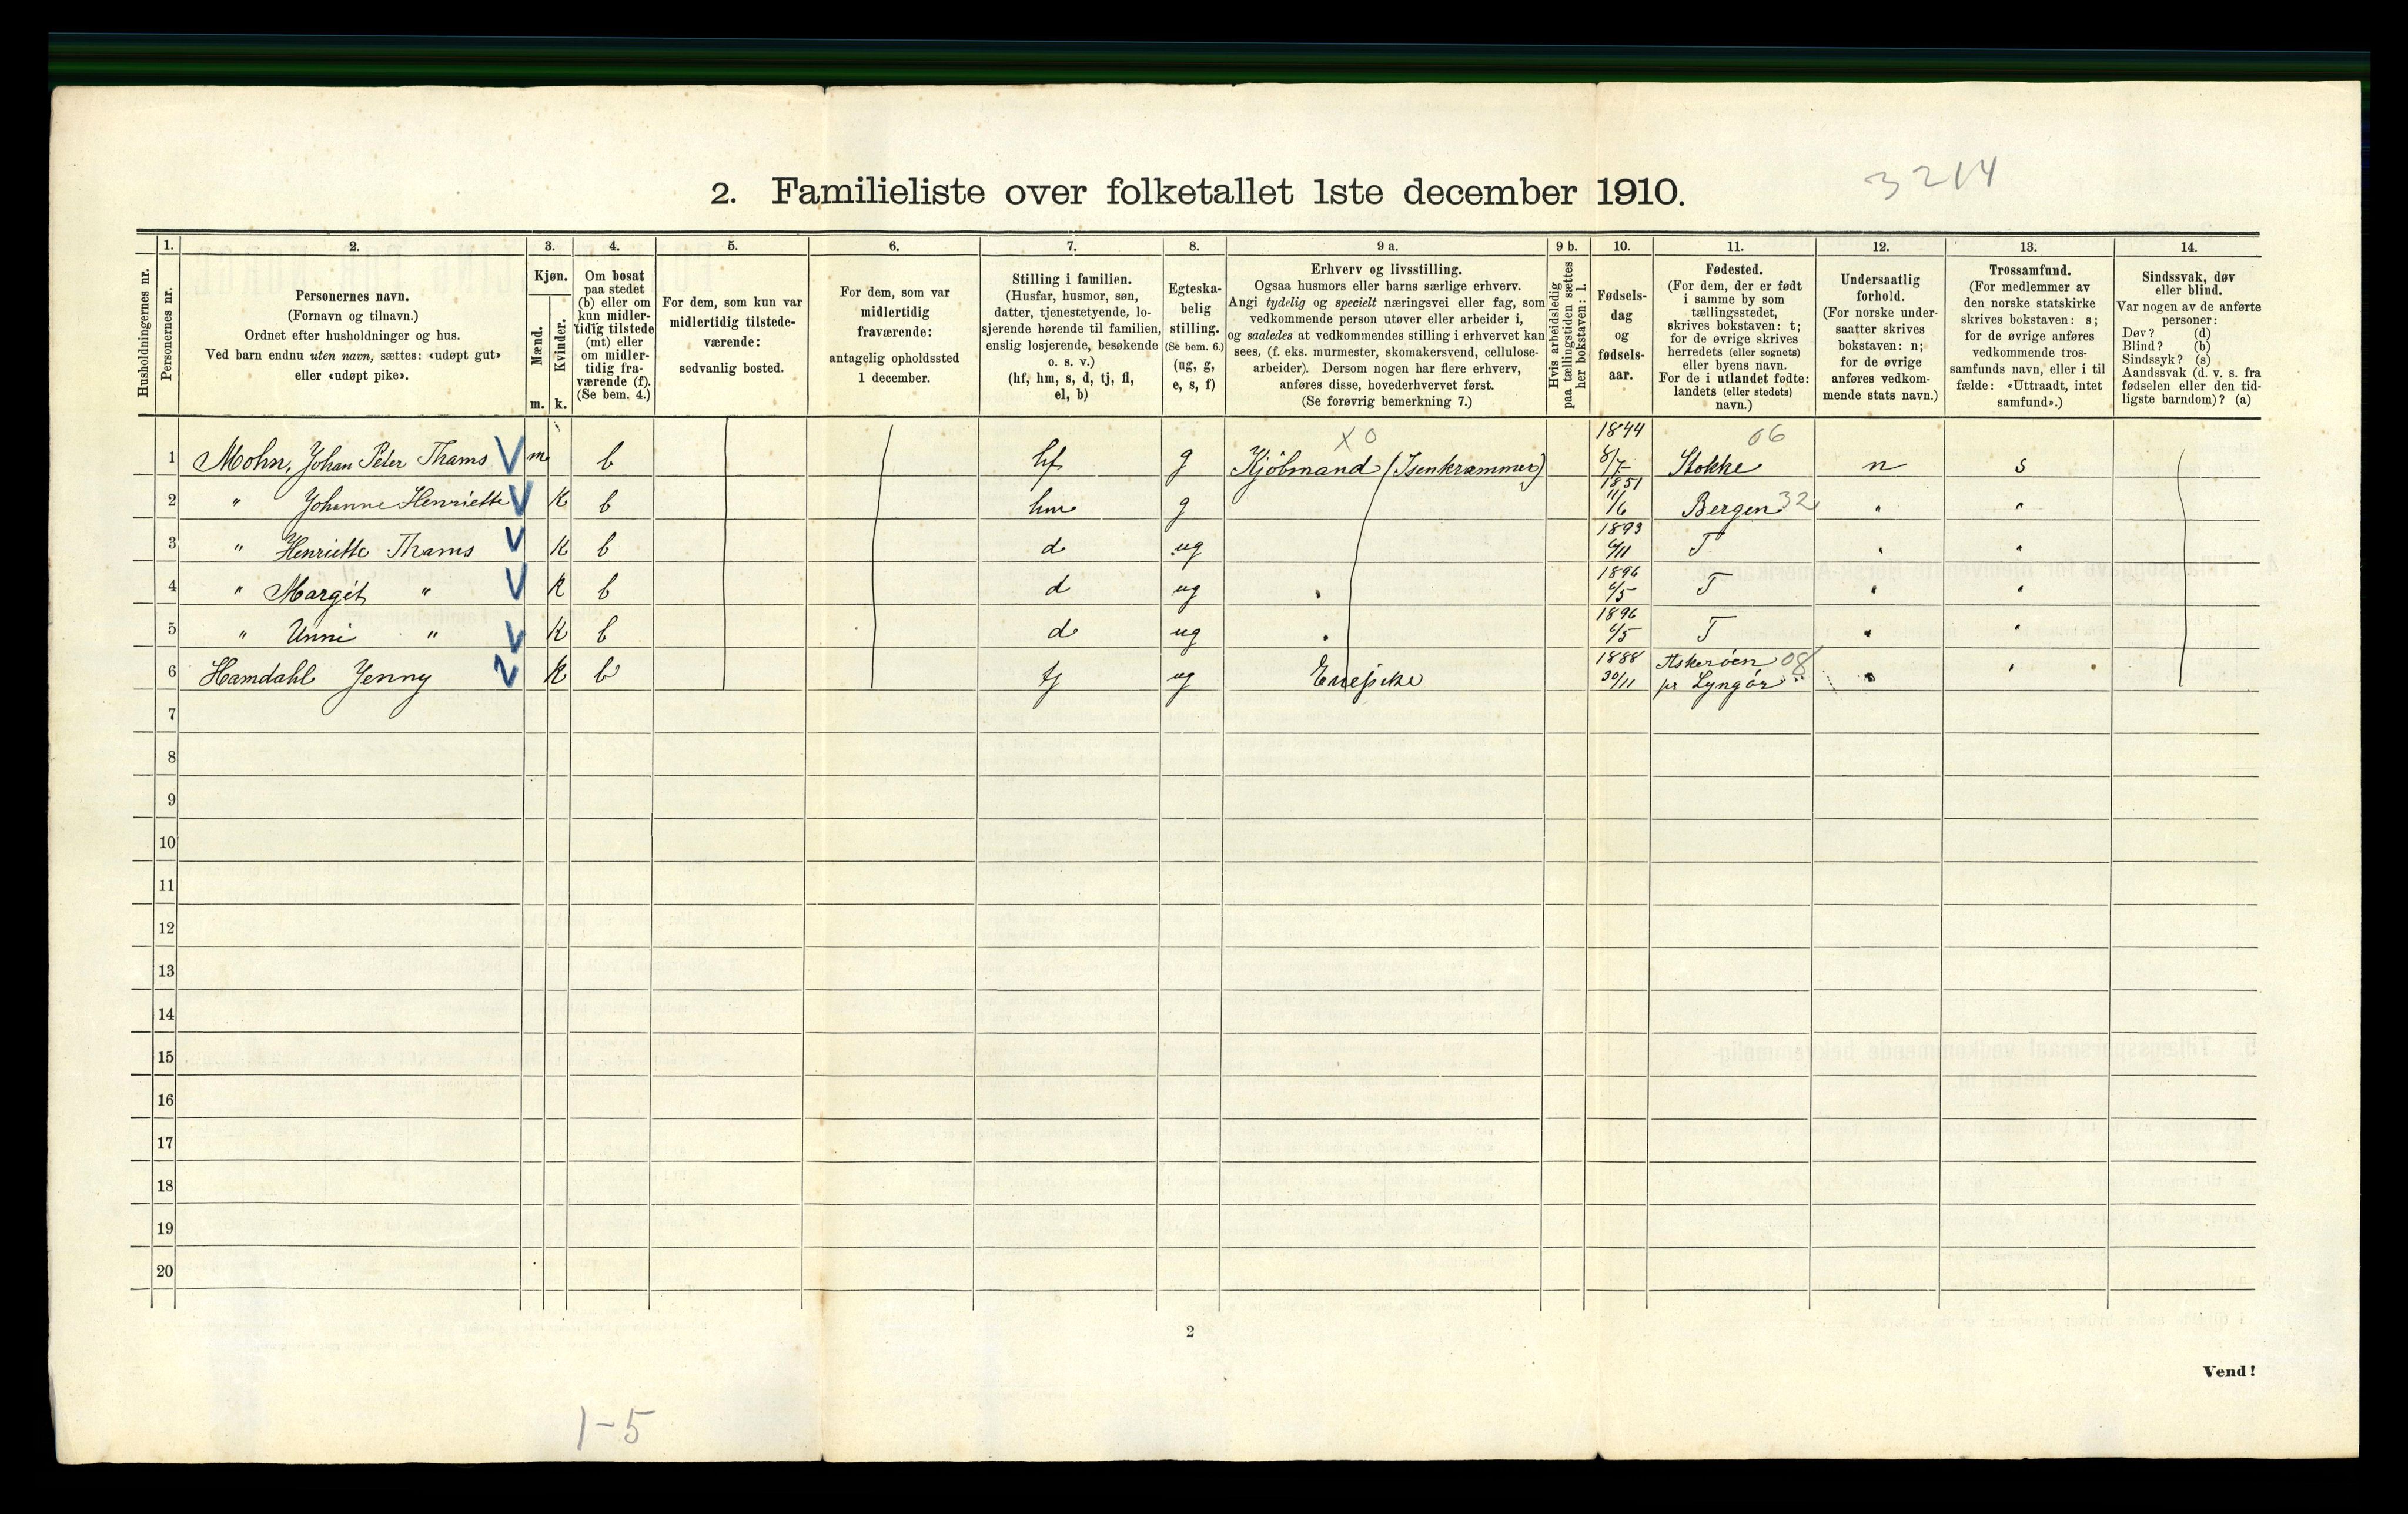 2. Familieliste over folketallet 1ste december 1910.
3214
1. 2. 3. 4. 5. 6. 7. 8. 9 a. 9 b. 10. 11. 12. 13. 14.
Husholdningernes nr.
Personernes nr.
Personernes navn.
(Fornavn og tilnavn.)
Ordnet efter husholdninger og hus.
Ved barn endnu uten navn, sættes: «udøpt gut»
eller «udøpt pike».
Kjøn.
Mænd.
m.
Kvinder.
k.
Om bosat
paa stedet
(b) eller om
kun midler-
tidig tilstede
(mt) eller
om midler-
tidig fra-
værende (f).
(Se bem. 4.)
For dem, som kun var
midlertidig tilstede-
værende:
sedvanlig bosted.
For dem, som var
midlertidig
fraværende:
antagelig opholdssted
1 december.
Stilling i familien.
(Husfar, husmor, søn,
datter, tjenestetyende, lo-
sjerende hørende til familien,
enslig losjerende, besøkende
o. s. v.)
(hf, hm, s, d, tj, fl,
el, b)
Egteska-
belig
stilling.
(Se bem. 6.)
(ug, g,
e, s, f)
Erhverv og livsstilling.
Ogsaa husmors eller barns særlige erhverv.
Angi tydelig og specielt næringsvei eller fag, som
vedkommende person utøver eller arbeider i,
og saaledes at vedkommendes stilling i erhvervet kan
sees, (f. eks. murmester, skomakersvend, cellulose-
arbeider). Dersom nogen har flere erhverv,
anføres disse, hovederhvervet først.
(Se forøvrig bemerkning 7.)
Hvis arbeidsledig
paa tællingstiden sættes
her bokstaven: l.
Fødsels-
dag
og
fødsels-
aar.
Fødested.
(For dem, der er født
i samme by som
tællingsstedet,
skrives bokstaven: t;
for de øvrige skrives
herredets (eller sognets)
eller byens navn.
For de i utlandet fødte:
landets (eller stedets)
navn.)
Undersaatlig
forhold.
(For norske under-
saatter skrives
bokstaven: n;
for de øvrige
anføres vedkom-
mende stats navn.)
Trossamfund.
(For medlemmer av
den norske statskirke
skrives bokstaven: s;
for de øvrige anføres
vedkommende tros-
samfunds navn, eller i til
fælde: «Uttraadt, intet
samfund».)
Sindssvak, døv
eller blind.
Var nogen av de anførte
personer:
Døv? (d)
Blind? (b)
Sindssyk? (s)
Aandssvak (d. v. s. fra
fødselen eller den tid-
ligste barndom)? (a)
1 Mohn, Johan Peter Thams V m b hf g X 0 Kjöbmand (Isenkrammer) 1844 8/7 06 Stokke n s
2 " Johanne Henriette V K b hm g 1851 11/6 Bergen 32 " "
3 " Henriette Thams V K b d ug 1893 6/11 T " "
4 " Margit " V K b d ug " 1896 6/5 T " "
5 " Unni " V K b d ug " 1896 6/5 T " "
6 Hamdahl Jenny V K b tj ug Enepike 1888 30/11 Askeröen 08 pr Lyngör " "
7
8
9
10
11
12
13
14
15
16
17
18
19
20
2
Vend!
1-5